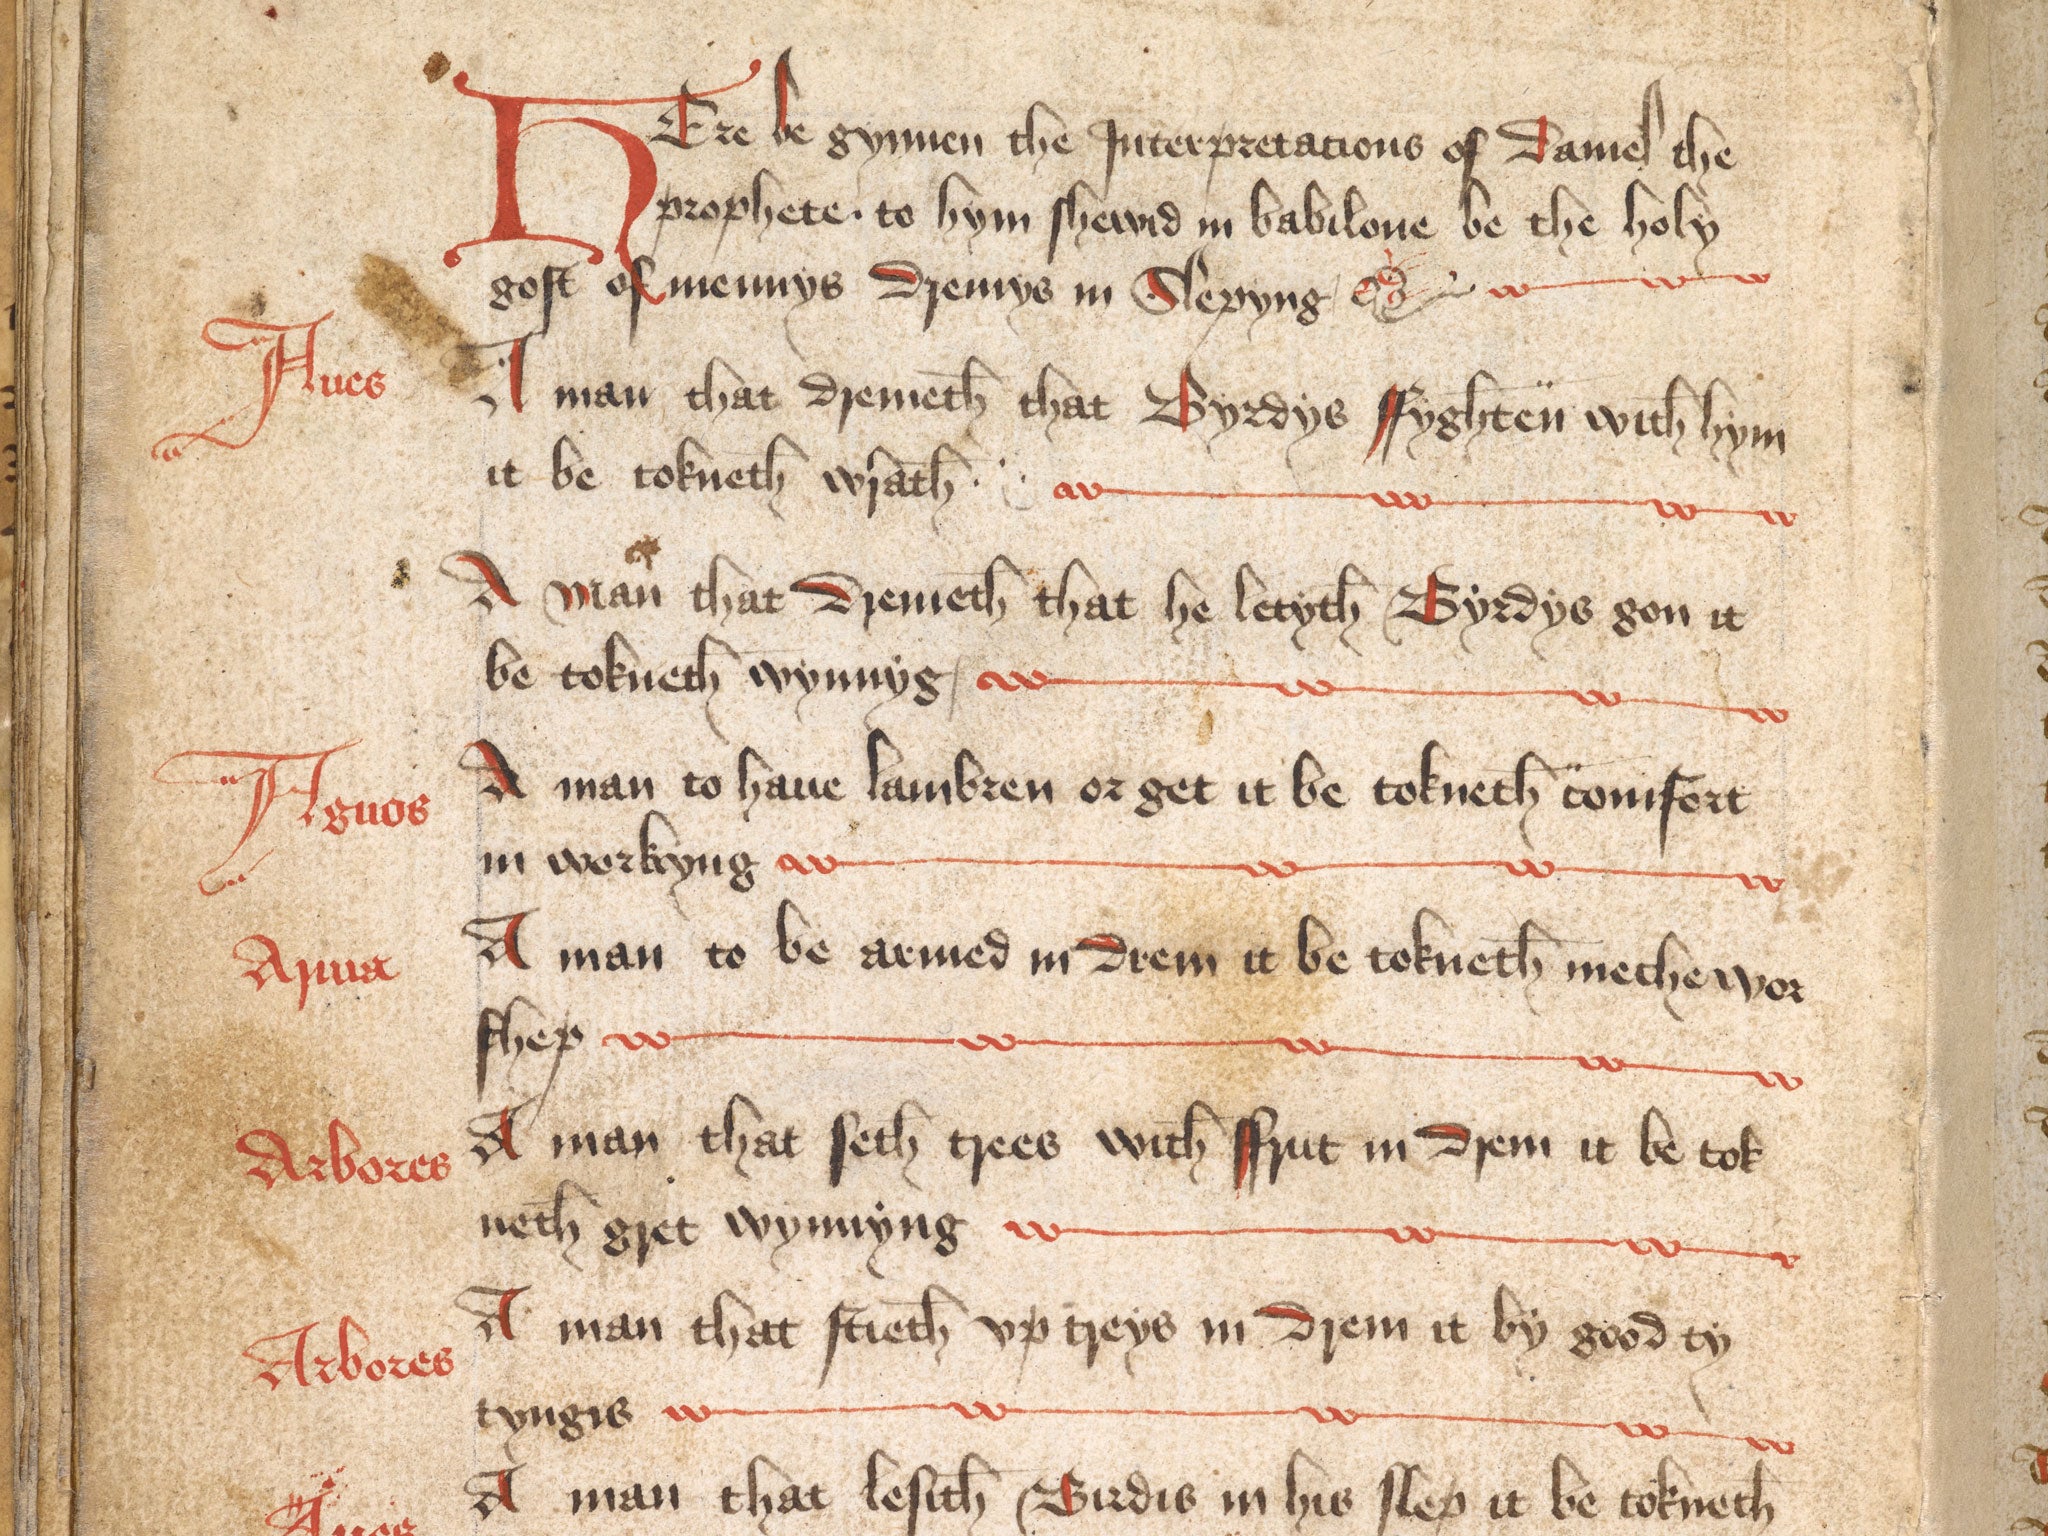 HEre be gynnen the Interpretacions of Daniel the
prophete · to hym shewid in babilone be the holy
gost of mennys Dremys in Slepyng
Aues
A man that dremeth that Byrdys ffyghten with hym
it be tokneth wrath ·
A man that Dremeth that he letyth Byrdys gon it
be tokneth wynnyg
Agnos
A man to haue lambren or get it be tokneth comfort
in workyng
Arma
A man to be armed in Drem it be tokneth meche wor
shep
Arbores
A man that seth trees with ffrut in Drem it be tok
neth gret wynnyng
Arbores
A man that stieth vp treys in Drem it by good ty
tyngis
Aues
A man that lesith Birdis in his slep it be tokneth